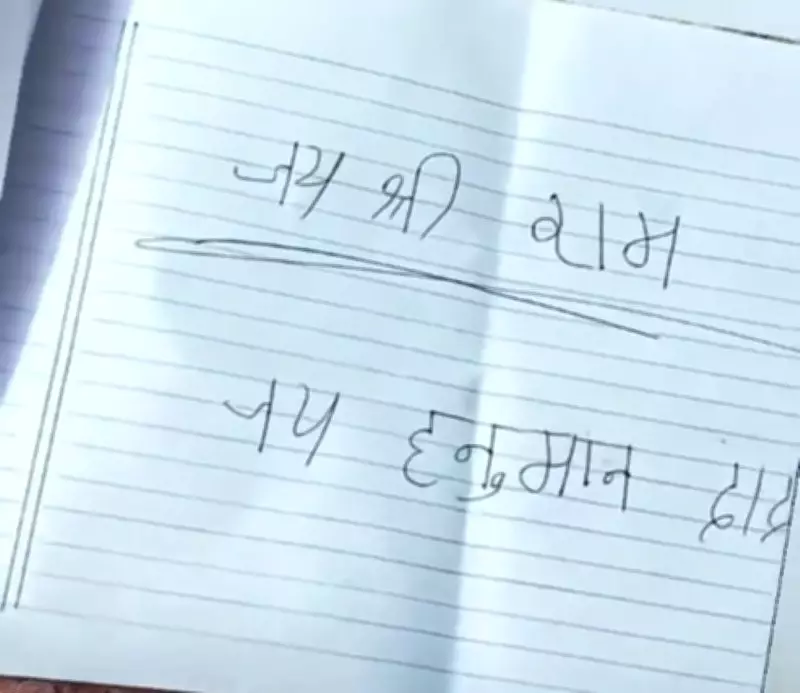 जय श्री राम
जय हनुमान दाद